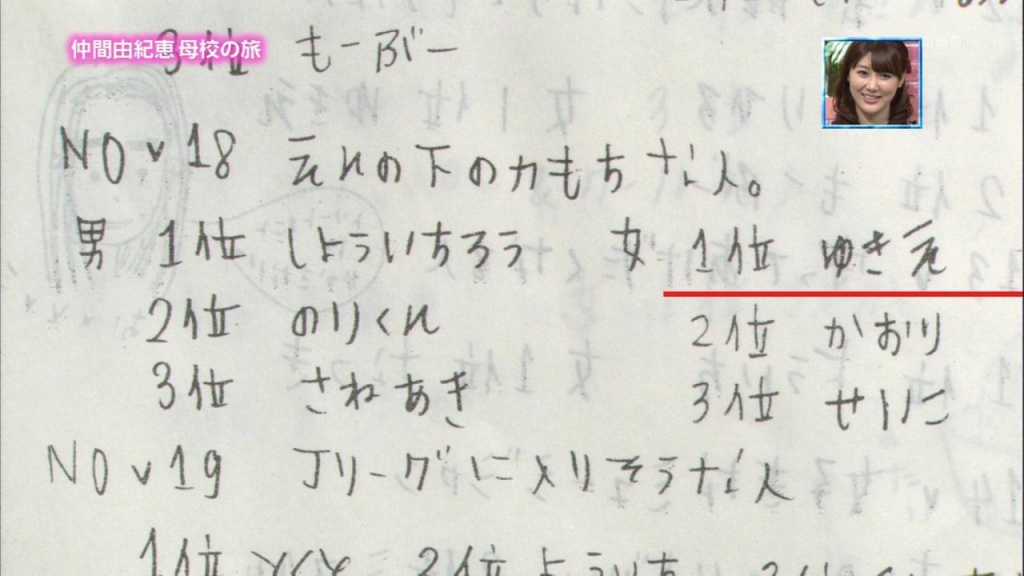 仲間由紀恵 母校の旅
3位 もーぶー
NO 18 えんの下の力もちな人。
男 1位 しょういちろう 女 1位 ゆきえ
2位 のりくん 2位 かおり
3位 さねあき 3位 せいこ
NO 19 Jリーグに入りそうな人
1位 2位 よういち